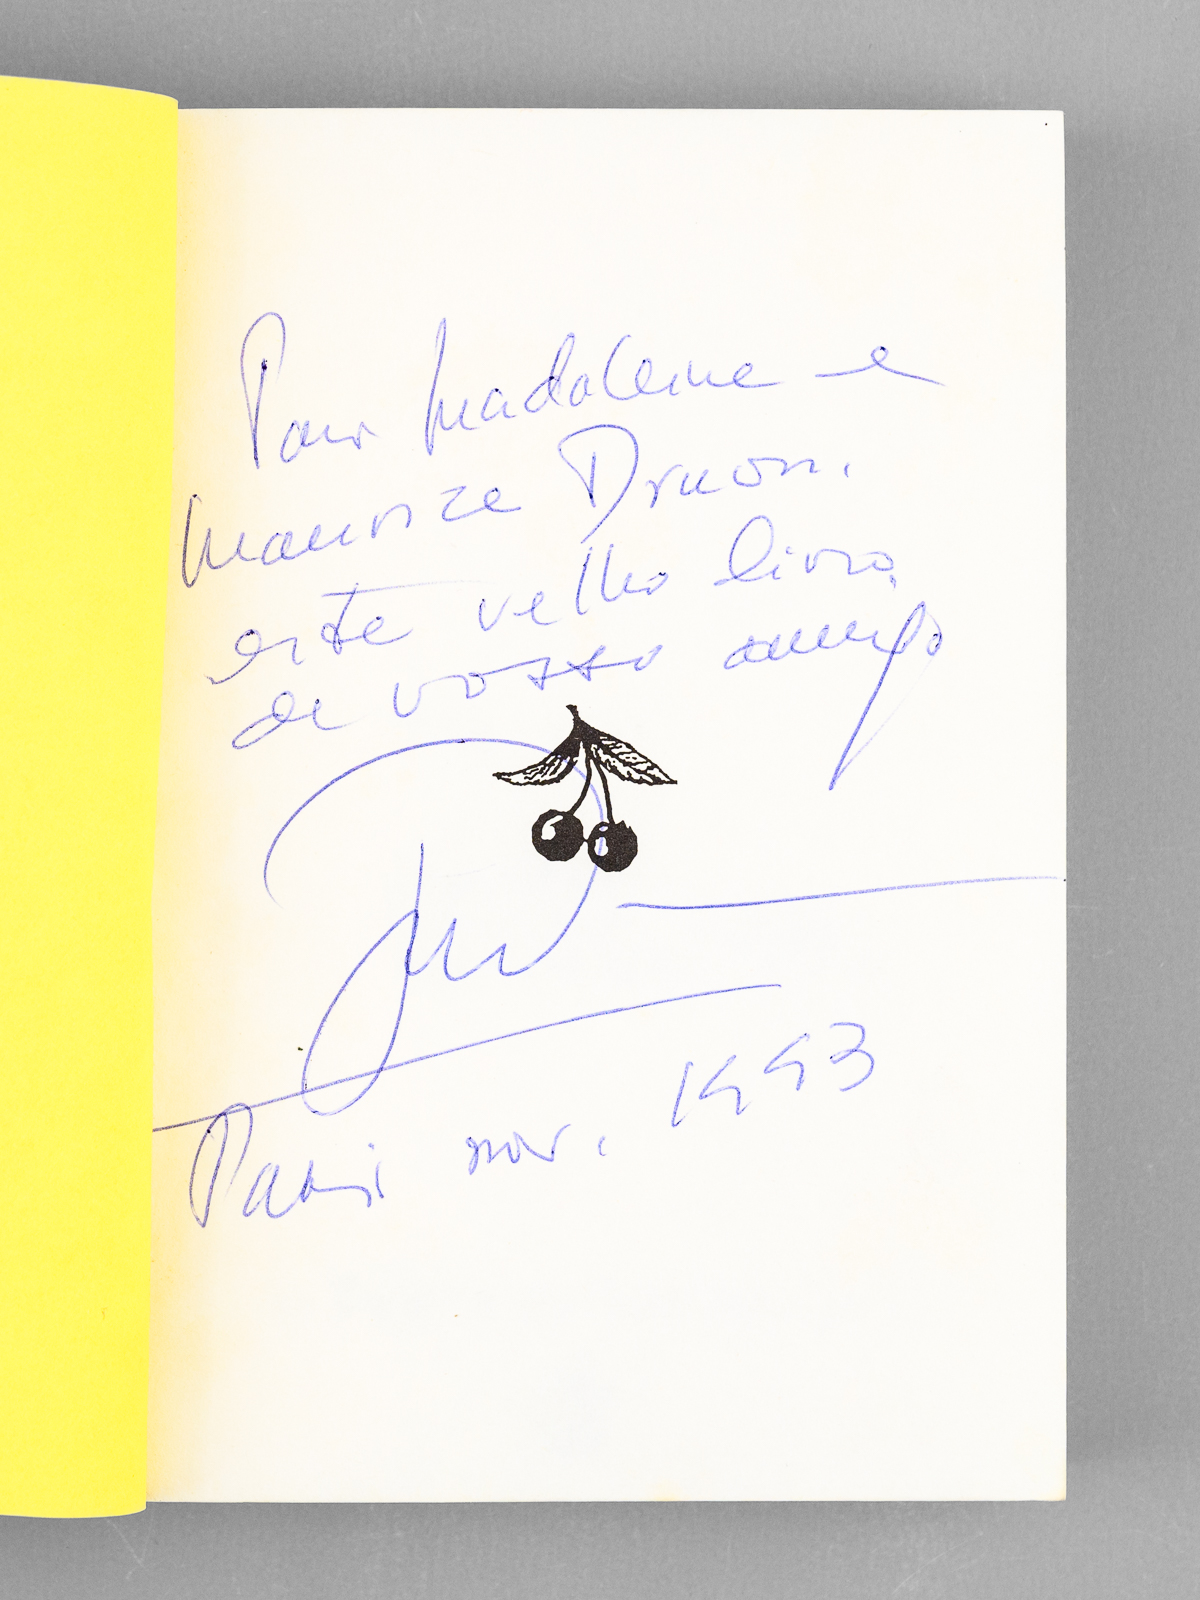 Pour Madaleine e
Maurice Druon.
este velho livro
de vosso amigo
Paris nov. 1993